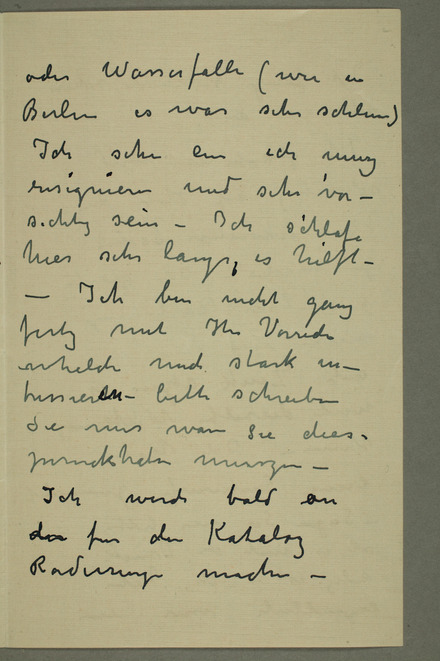 oder Wasserfälle (wie in
Berlin es war sehr schlimm)
Ich sehe ein ich muss
resignieren und sehr vor-
sichtig sein - Ich schlafe
hier sehr lange, es hilft -
- Ich bin nicht ganz
fertig mit Ihr Vorrede
und stark in-
bitte schreiben
Sie mir wan Sie dies.
zurückhaben -
Ich werde bald an
fur den Katalog
Radierunge machen -